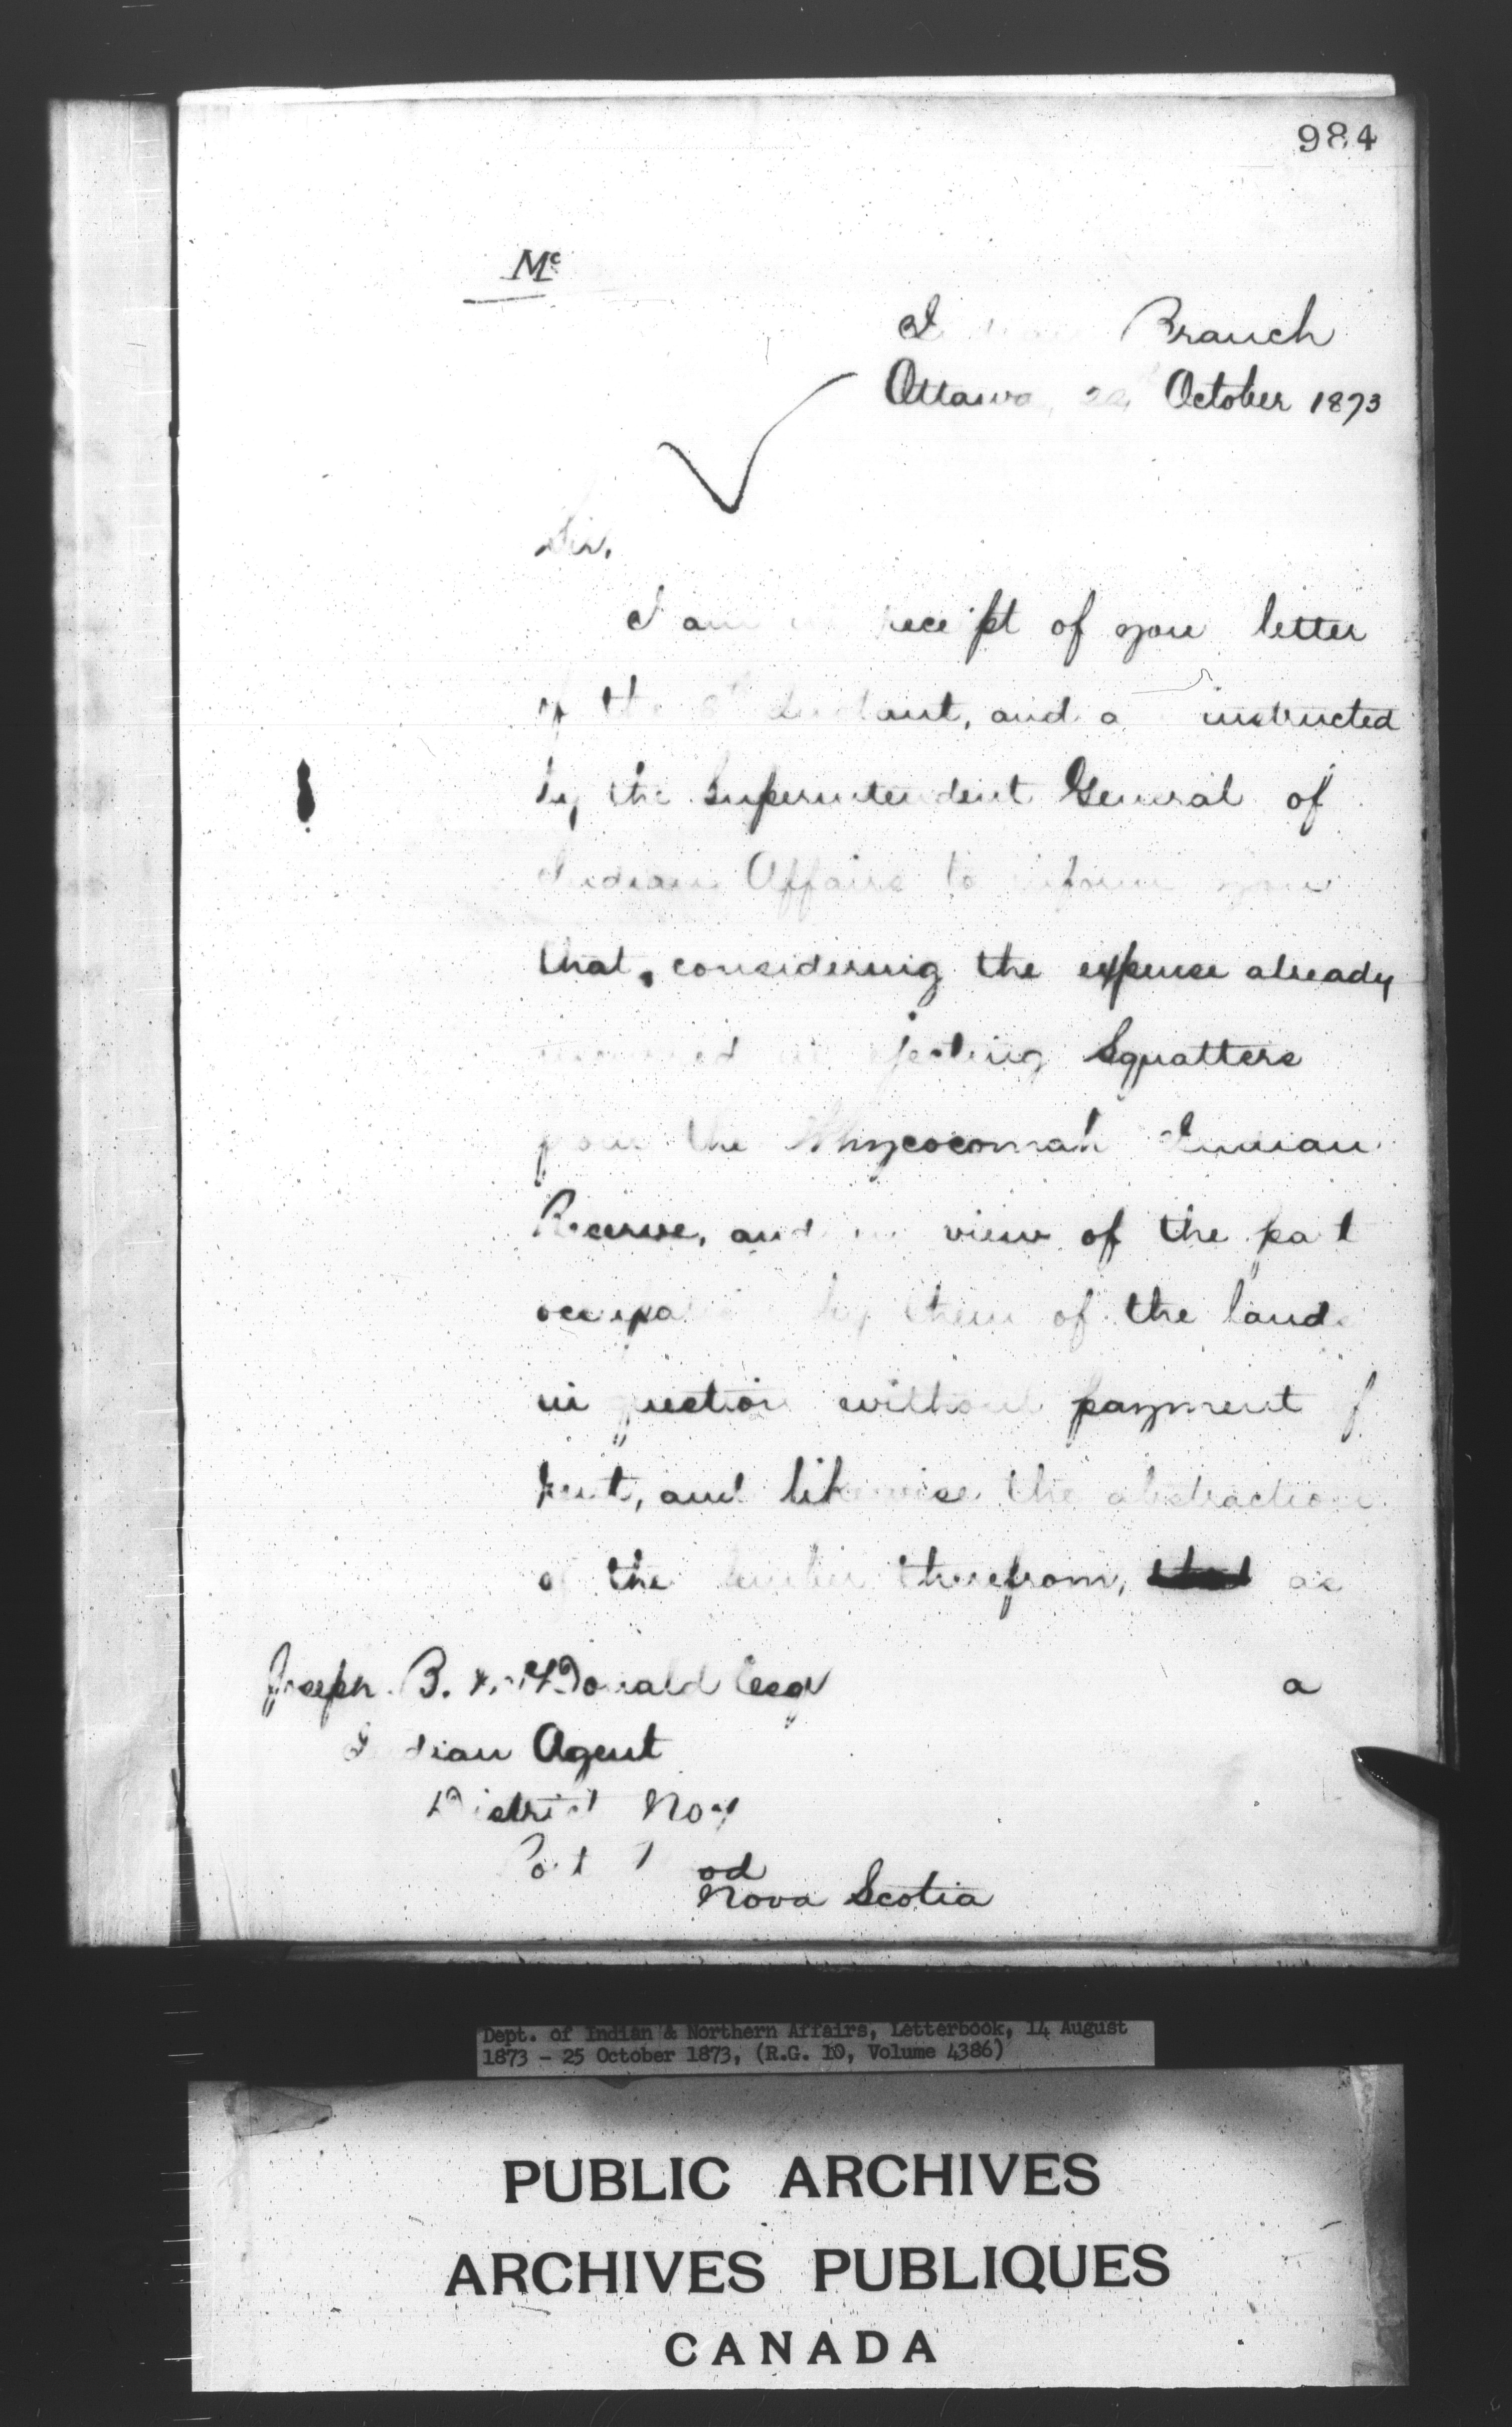 984
Mc
Indian Branch
Ottawa, October 1873
Sir,
I am in receipt of your letter
of the instant, and am instructed
by the Superintendent General of
Indian Affairs to inform you
that, considering the expense already
incurred in ejecting Squatters
from the Whycocomah Indian
Reserve, and in view of the past
occupation by them of the lands
in question without payment of
rent, and likewise the abstraction
of the timber therefrom, as
Joseph B. McDonald Esqr
a
Indian Agent
District No
Port Hood
Nova Scotia
Dept. of Indian & Northern Affairs, Letterbook, 14 August
1873 - 25 October 1873, (R.G. 10, Volume 4386)
PUBLIC ARCHIVES
ARCHIVES PUBLIQUES
CANADA